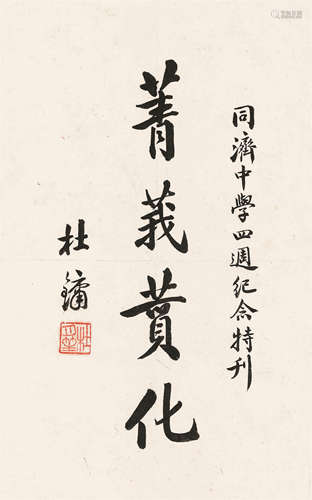 同濟中學四週紀念特刊
菁莪賁化
杜鏞